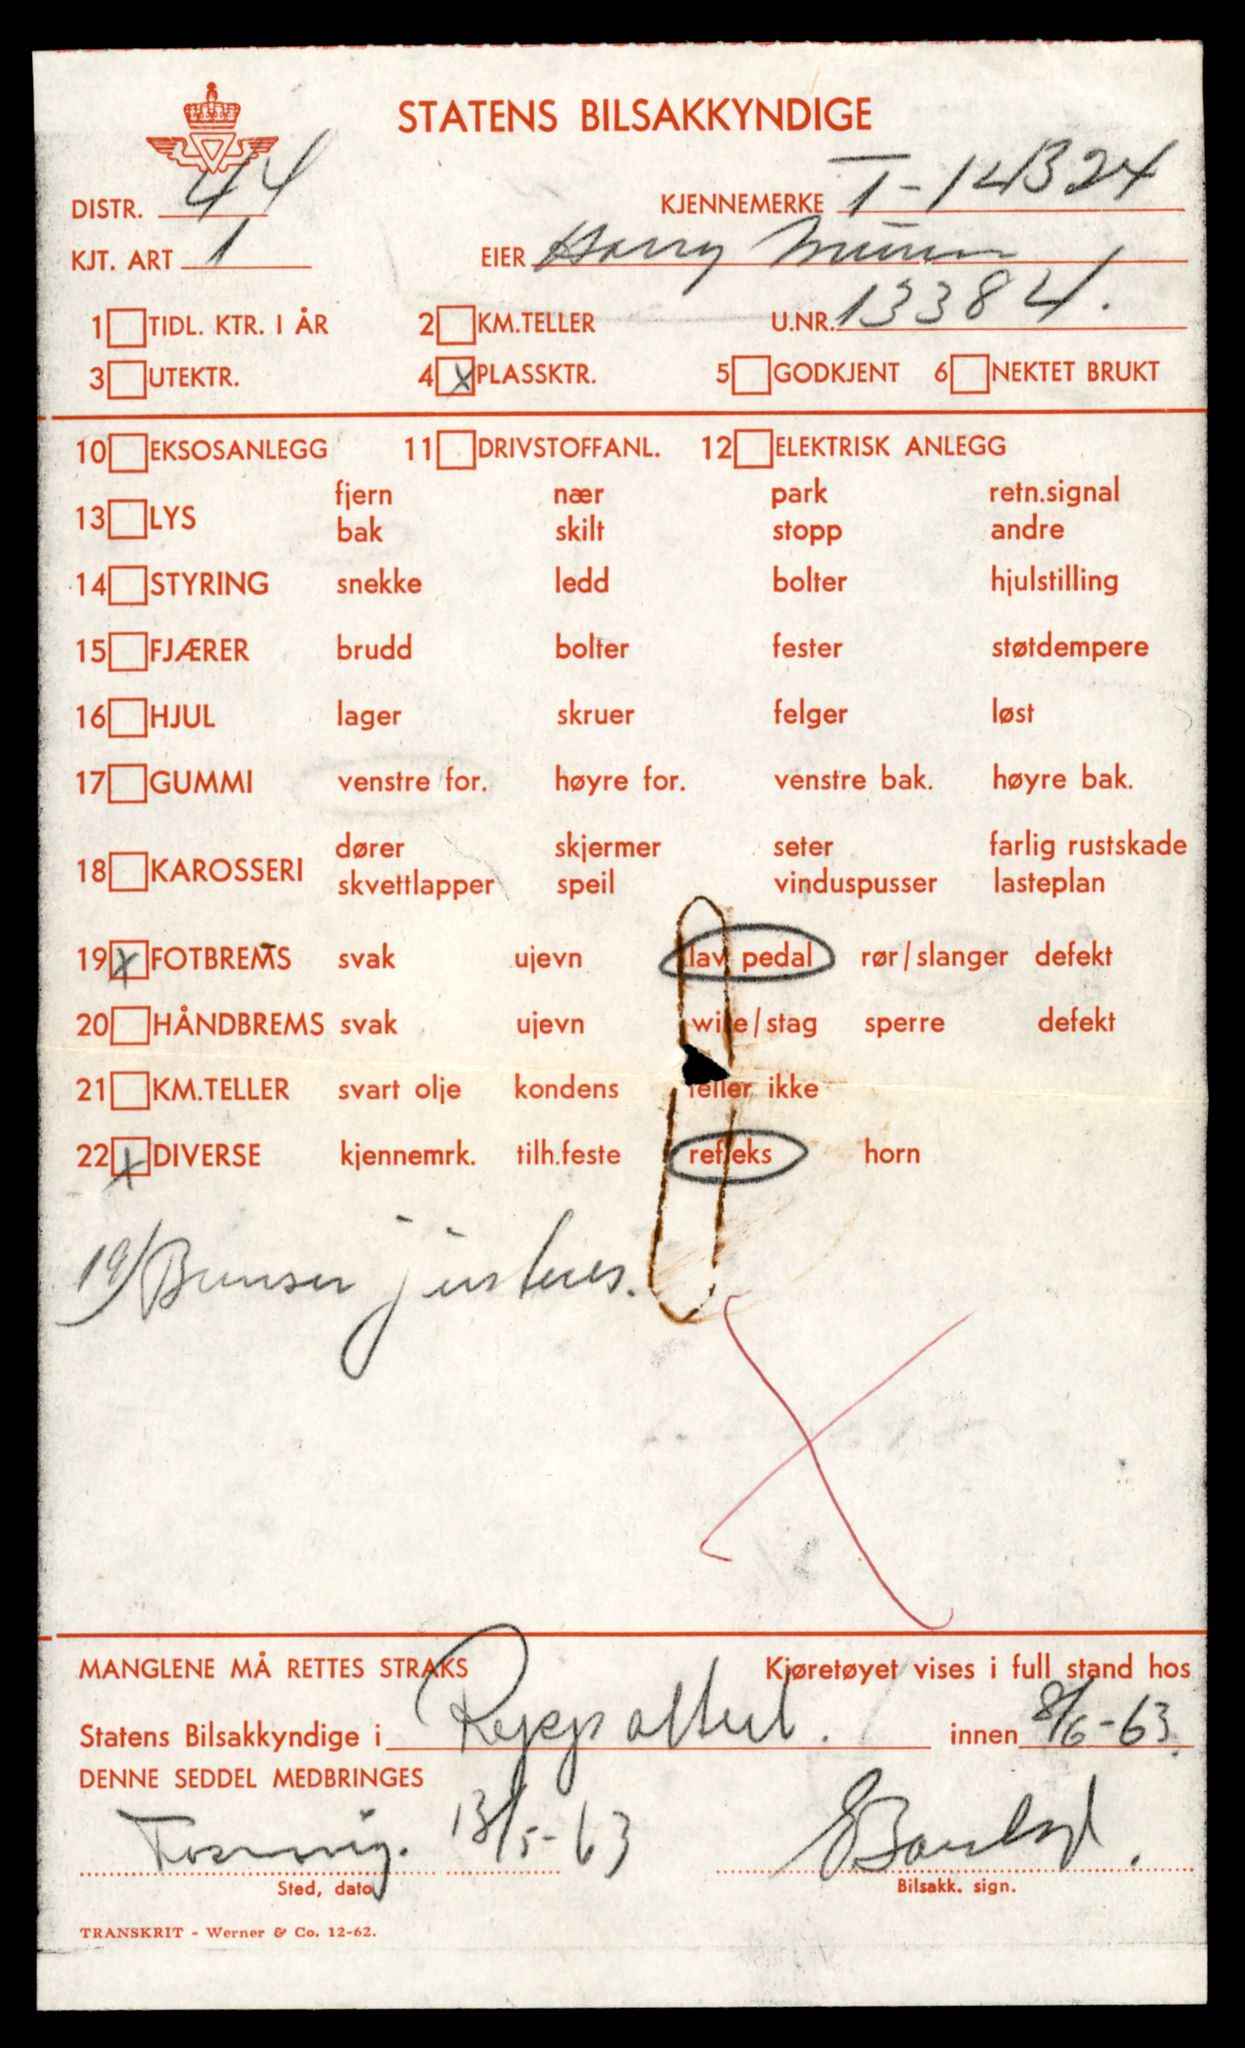 STATENS BILSAKKYNDIGE
DISTR. 44 KJENNEMERKE T-14324
KJT. ART 1 EIER Harry
1 TIDL. KTR. I ÅR 2 KM.TELLER U.NR. 13384.
3 UTEKTR. 4 x PLASSKTR. 5 GODKJENT 6 NEKTET BRUKT
10 EKSOSANLEGG 11 DRIVSTOFFANL. 12 ELEKTRISK ANLEGG
fjern nær park retn.signal
13 LYS
bak skilt stopp andre
14 STYRING snekke ledd bolter hjulstilling
15 FJÆRER brudd bolter fester støtdempere
16 HJUL lager skruer felger løst
17 GUMMI venstre for. høyre for. venstre bak. høyre bak.
dører skjermer seter farlig rustskade
18 KAROSSERI
skvettlapper speil vinduspusser lasteplan
19 x FOTBREMS svak ujevn lav pedal rør/slanger defekt
20 HÅNDBREMS svak ujevn wire/stag sperre defekt
21 KM.TELLER svart olje kondens teller ikke
22 x DIVERSE kjennemrk. tilh.feste refleks horn
19/ justeres.
MANGLENE MÅ RETTES STRAKS Kjøretøyet vises i full stand hos
Statens Bilsakkyndige i innen 8/6-63.
DENNE SEDDEL MEDBRINGES
13/5-63
Sted, dato Bilsakk. sign.
TRANSKRIT - Werner & Co. 12-62.